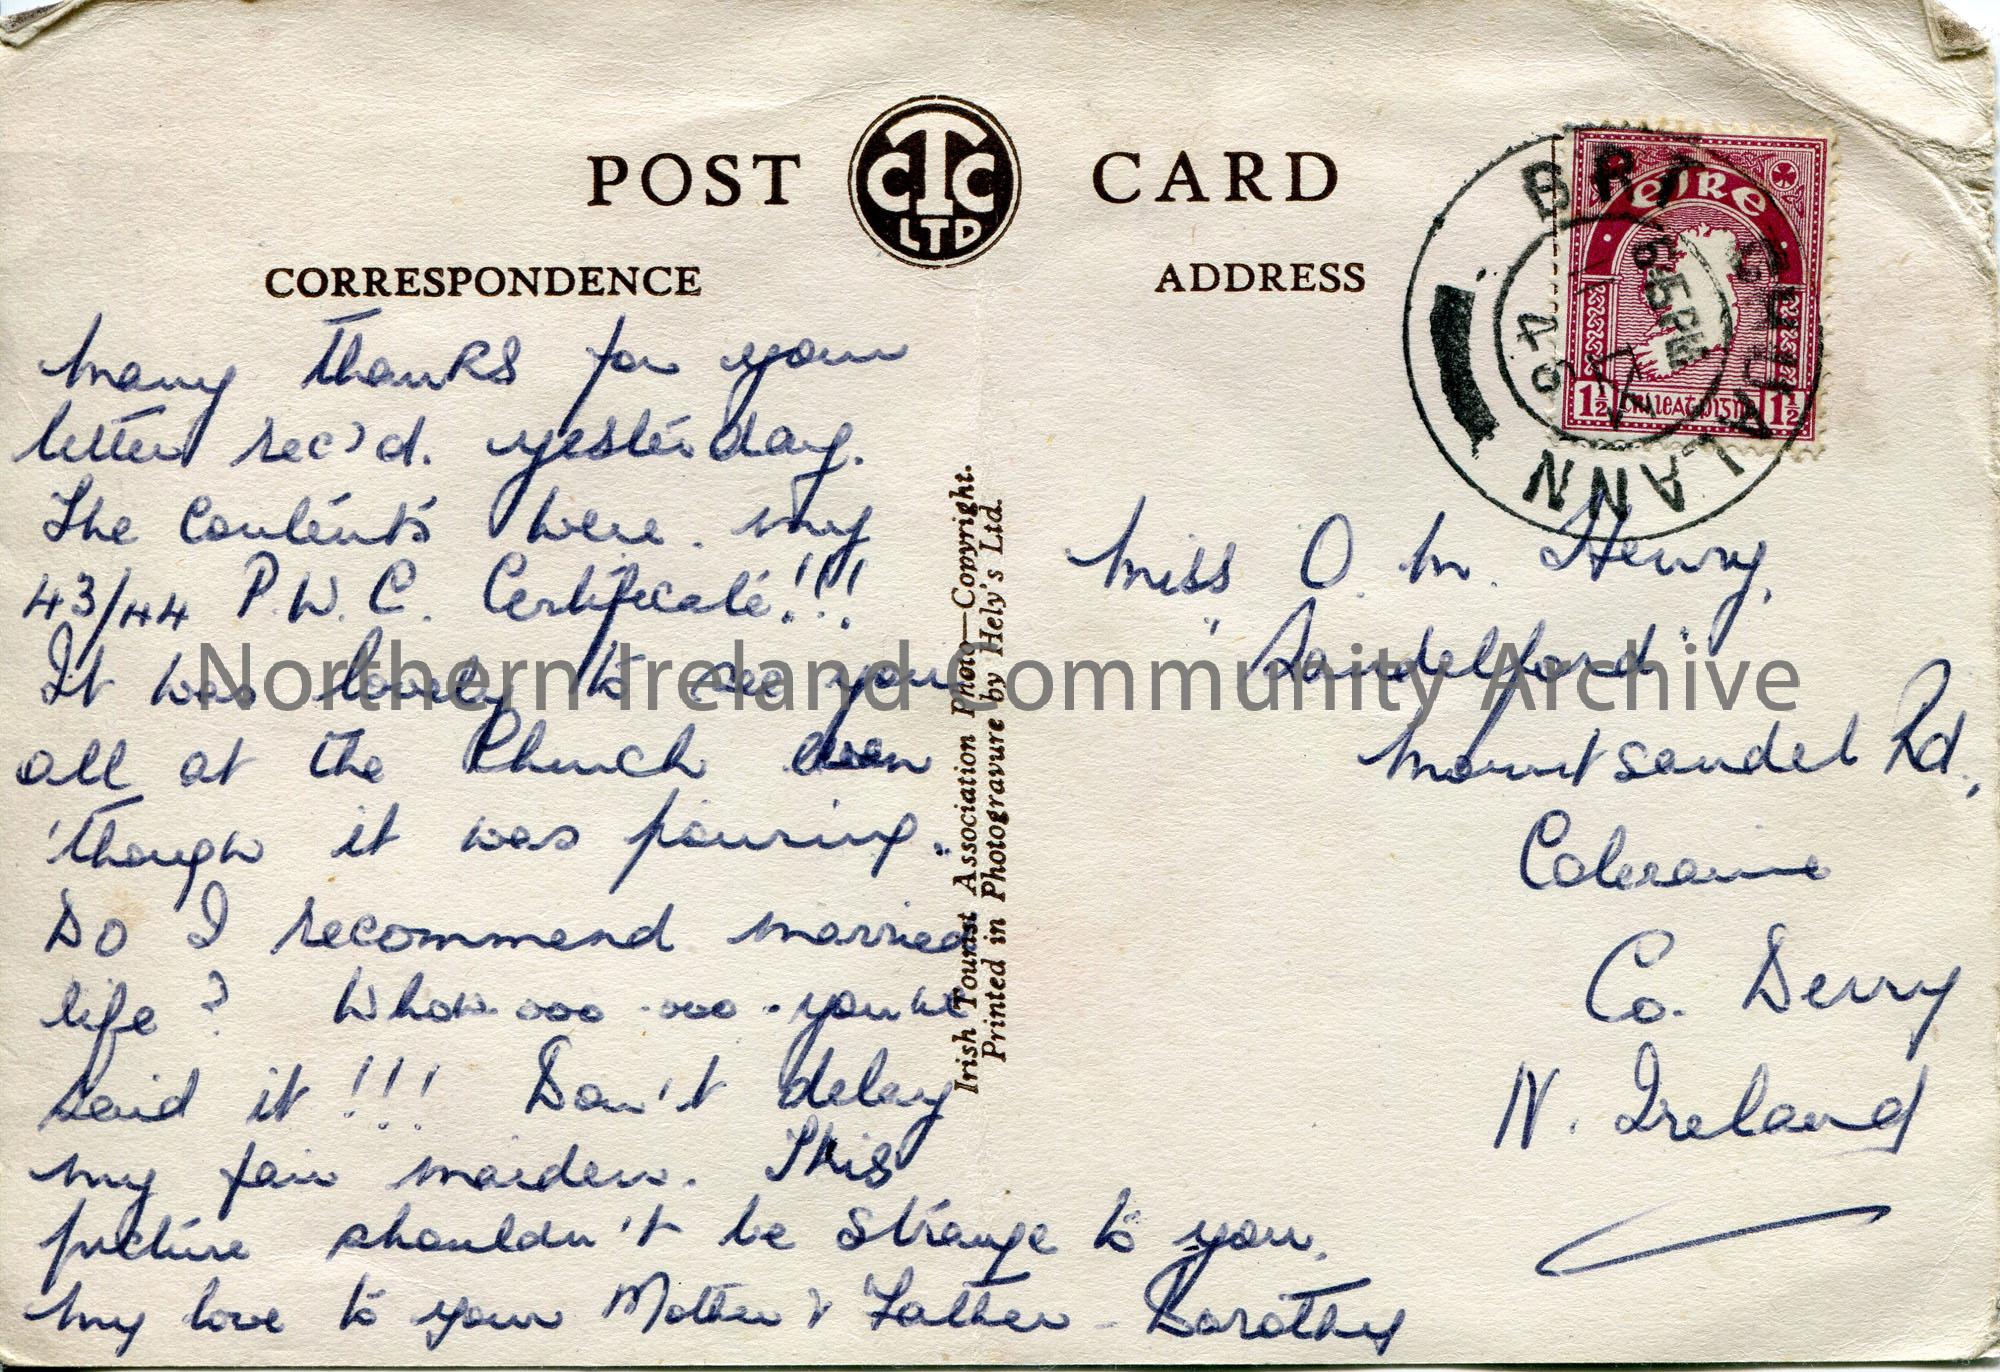 POST CARD
CTC LTD
CORRESPONDENCE
Many thanks for your
letter rec'd. yesterday.
The contents were my
43/44 P.W.C. Certificate!!!
It was lovely to see you
all at the Church even
'though it was pouring.
Do I recommend married
life? Whow ooo .ooo . you've
said it!!! Don't delay
my fair maiden. This
picture shouldn't be strange to you.
My love to your Mother & Father - Dorothy
Irish Tourist Association Photo—Copyright.
Printed in Photogravure by Hely's Ltd.
ADDRESS
ÉIRE
1½ 1½
BRÍ CHUALANN
6 15 PM
46
Miss O. M. Henry,
"Sandelford"
Mountsandel Rd.,
Coleraine
Co. Derry
N. Ireland
Northern Ireland Community Archive